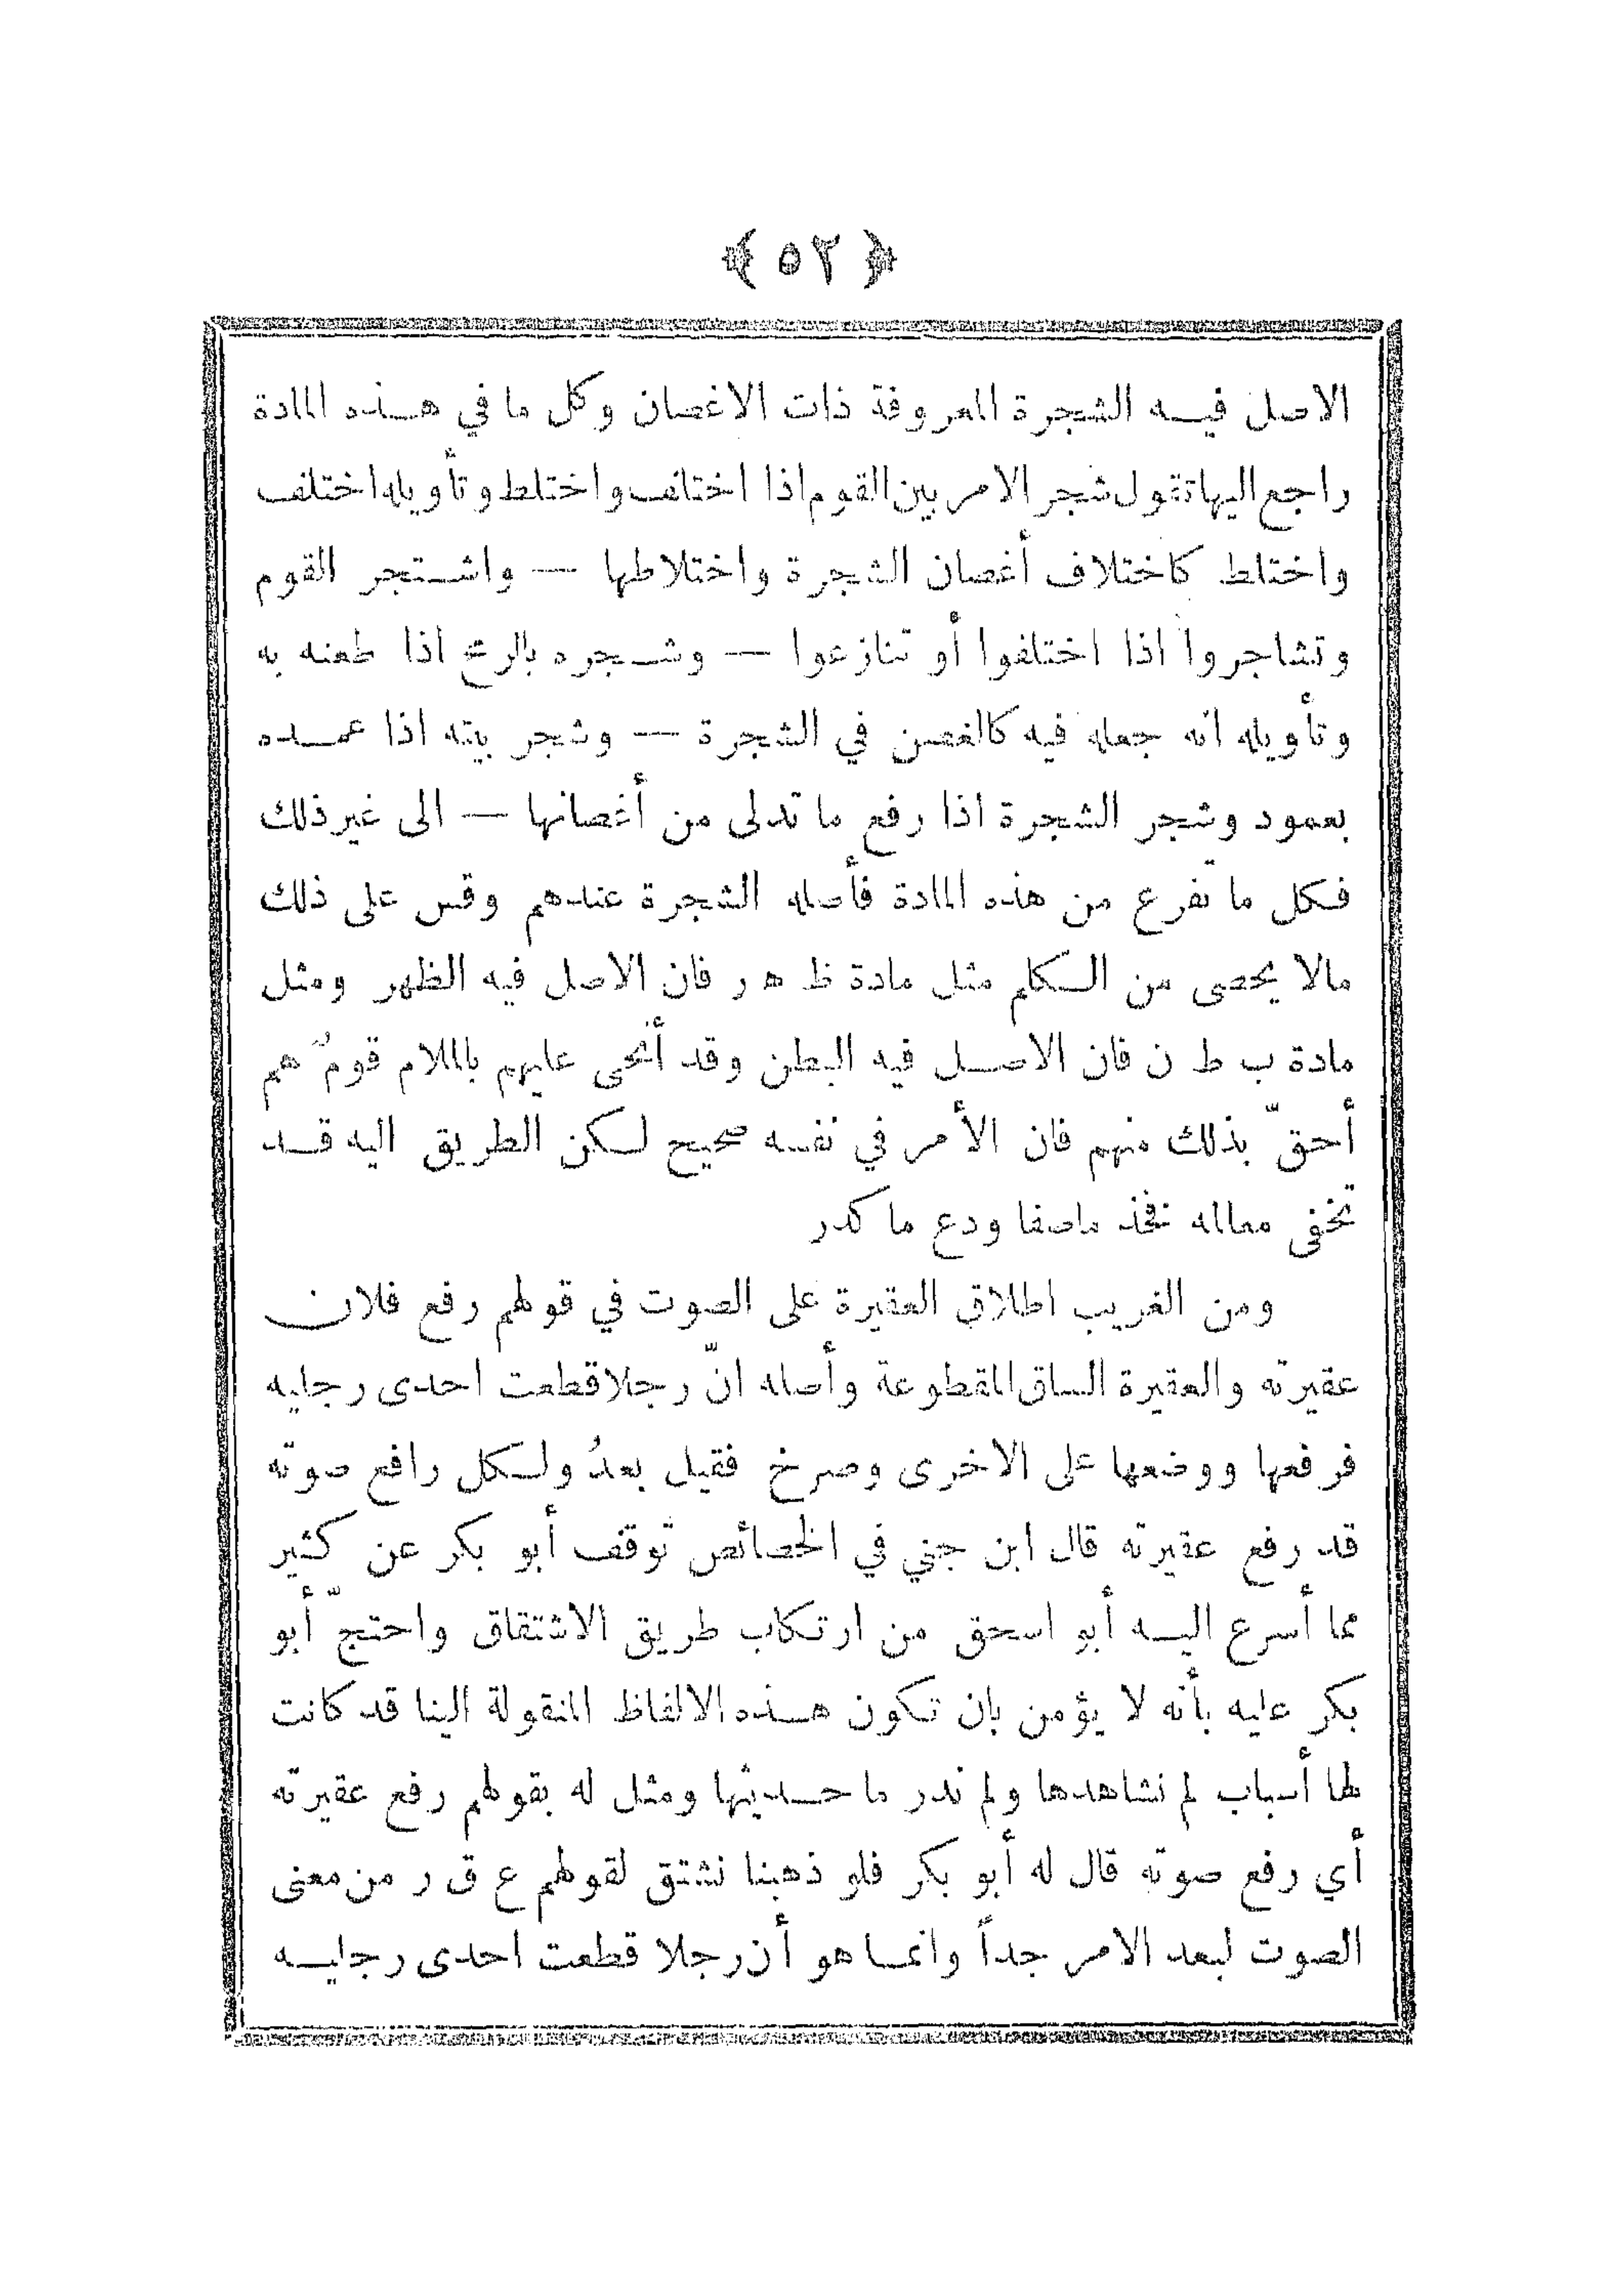 ﴿ ٥٢ ﴾
الاصل فيه الشجرة المعروفة ذات الاغصان وكل ما في هذه المادة
راجع اليها تقول شجر الامر بين القوم اذا اختلف واختلط وتأويله اختلف
واختلط كاختلاف أغصان الشجرة واختلاطها — واشتجر القوم
وتشاجروا اذا اختلفوا أو تنازعوا — وشجره بالرمح اذا طعنه به
وتأويله انه جعله فيه كالغصن في الشجرة — وشجر بيته اذا عمده
بعمود وشجر الشجرة اذا رفع ما تدلى من أغصانها — الى غير ذلك
فكل ما تفرع من هذه المادة فأصله الشجرة عندهم وقس على ذلك
مالا يحصى من الكلم مثل مادة ظ ه ر فان الاصل فيه الظهر ومثل
مادة ب ط ن فان الاصل فيه البطن وقد أنحى عليهم بالملام قومٌ هم
أحقّ بذلك منهم فان الأمر في نفسه صحيح لكن الطريق اليه قد
تخفى معالمه فخذ ماصفا ودع ما كدر
ومن الغريب اطلاق العقيرة على الصوت في قولهم رفع فلان
عقيرته والعقيرة الساق المقطوعة وأصله انّ رجلا قطعت احدى رجليه
فرفعها ووضعها على الاخرى وصرخ فقيل بعدُ ولكل رافع صوته
قد رفع عقيرته قال ابن جني في الخصائص توقف أبو بكر عن كثير
مما أسرع اليه أبو اسحق من ارتكاب طريق الاشتقاق واحتجّ أبو
بكر عليه بأنه لا يؤمن بان تكون هذه الالفاظ المنقولة الينا قد كانت
لها أسباب لم نشاهدها ولم ندر ما حديثها ومثل له بقولهم رفع عقيرته
أي رفع صوته قال له أبو بكر فلو ذهبنا نشتق لقولهم ع ق ر من معنى
الصوت لبعد الامر جداً وانما هو أن رجلا قطعت احدى رجليه